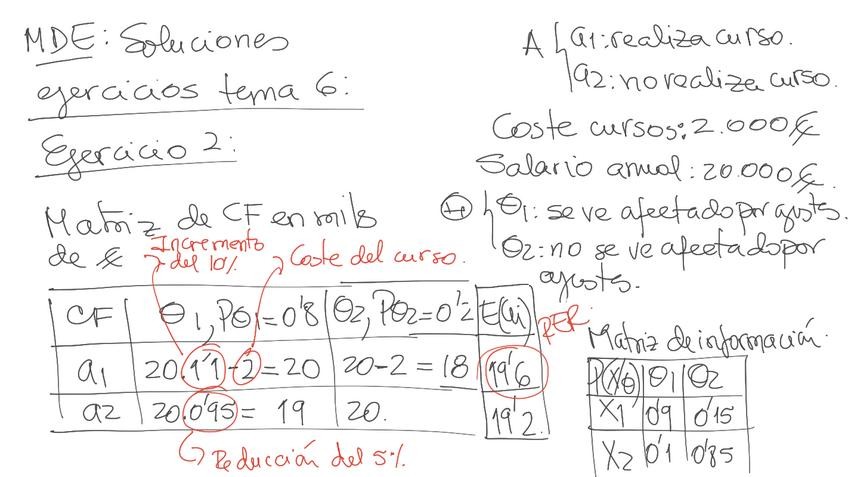 MDE: Soluciones
ejercicios tema 6:
Ejercicio 2:
A { a1: realiza curso.
a2: no realiza curso.
Coste cursos: 2.000€
Salario anual: 20.000€
Ⓗ { θ1: se ve afectado por ajusts.
θ2: no se ve afectado por
ajusts.
Matriz de CF en mils
de €
Incremento
del 10%
Coste del curso.
CF | θ1, Pθ1=0'8 | θ2, Pθ2=0'2 | E(ai)
a1 | 20.1'1-2=20 | 20-2=18 | 19'6
a2 | 20.0'95= 19 | 20. | 19'2.
RER.
Reducción del 5%
Matriz de información.
P(X/θ) | θ1 | θ2
X1 | 0'9 | 0'15
X2 | 0'1 | 0'85